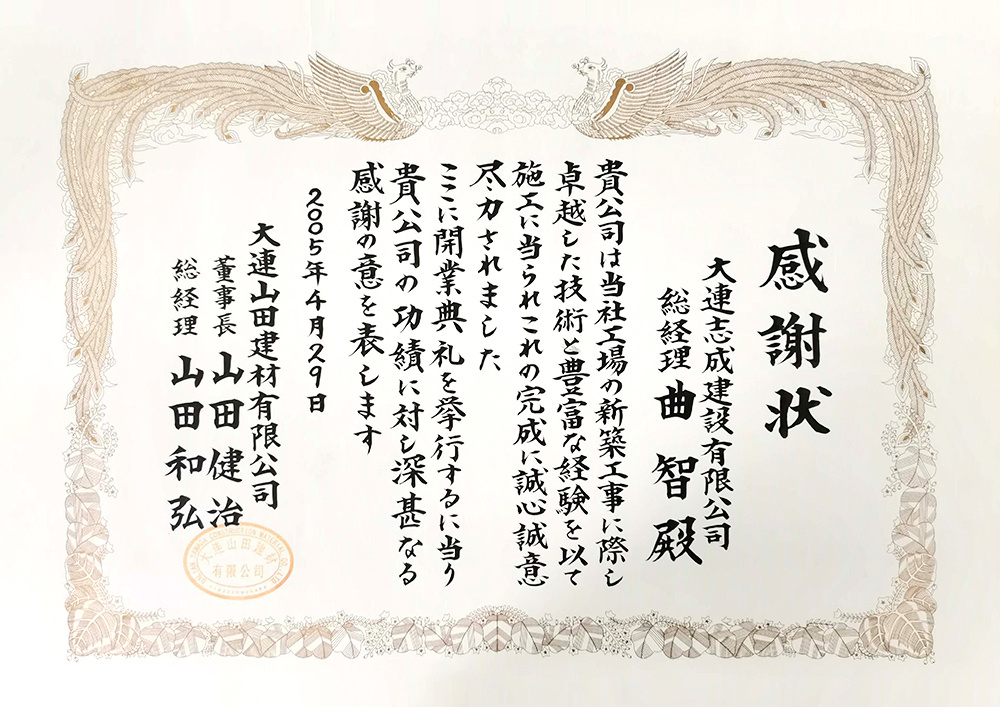 感謝状
大連志成建設有限公司
総経理 曲智殿
貴公司は当社工場の新築工事に際し
卓越した技術と豊富な経験を以て
施工に当られこれの完成に誠心誠意
尽力されました
ここに開業典礼を挙行するに当り
貴公司の功績に対し深甚なる
感謝の意を表します
2005年4月29日
大連山田建材有限公司
董事長 山田健治
総経理 山田和弘
大连山田建材
有限公司